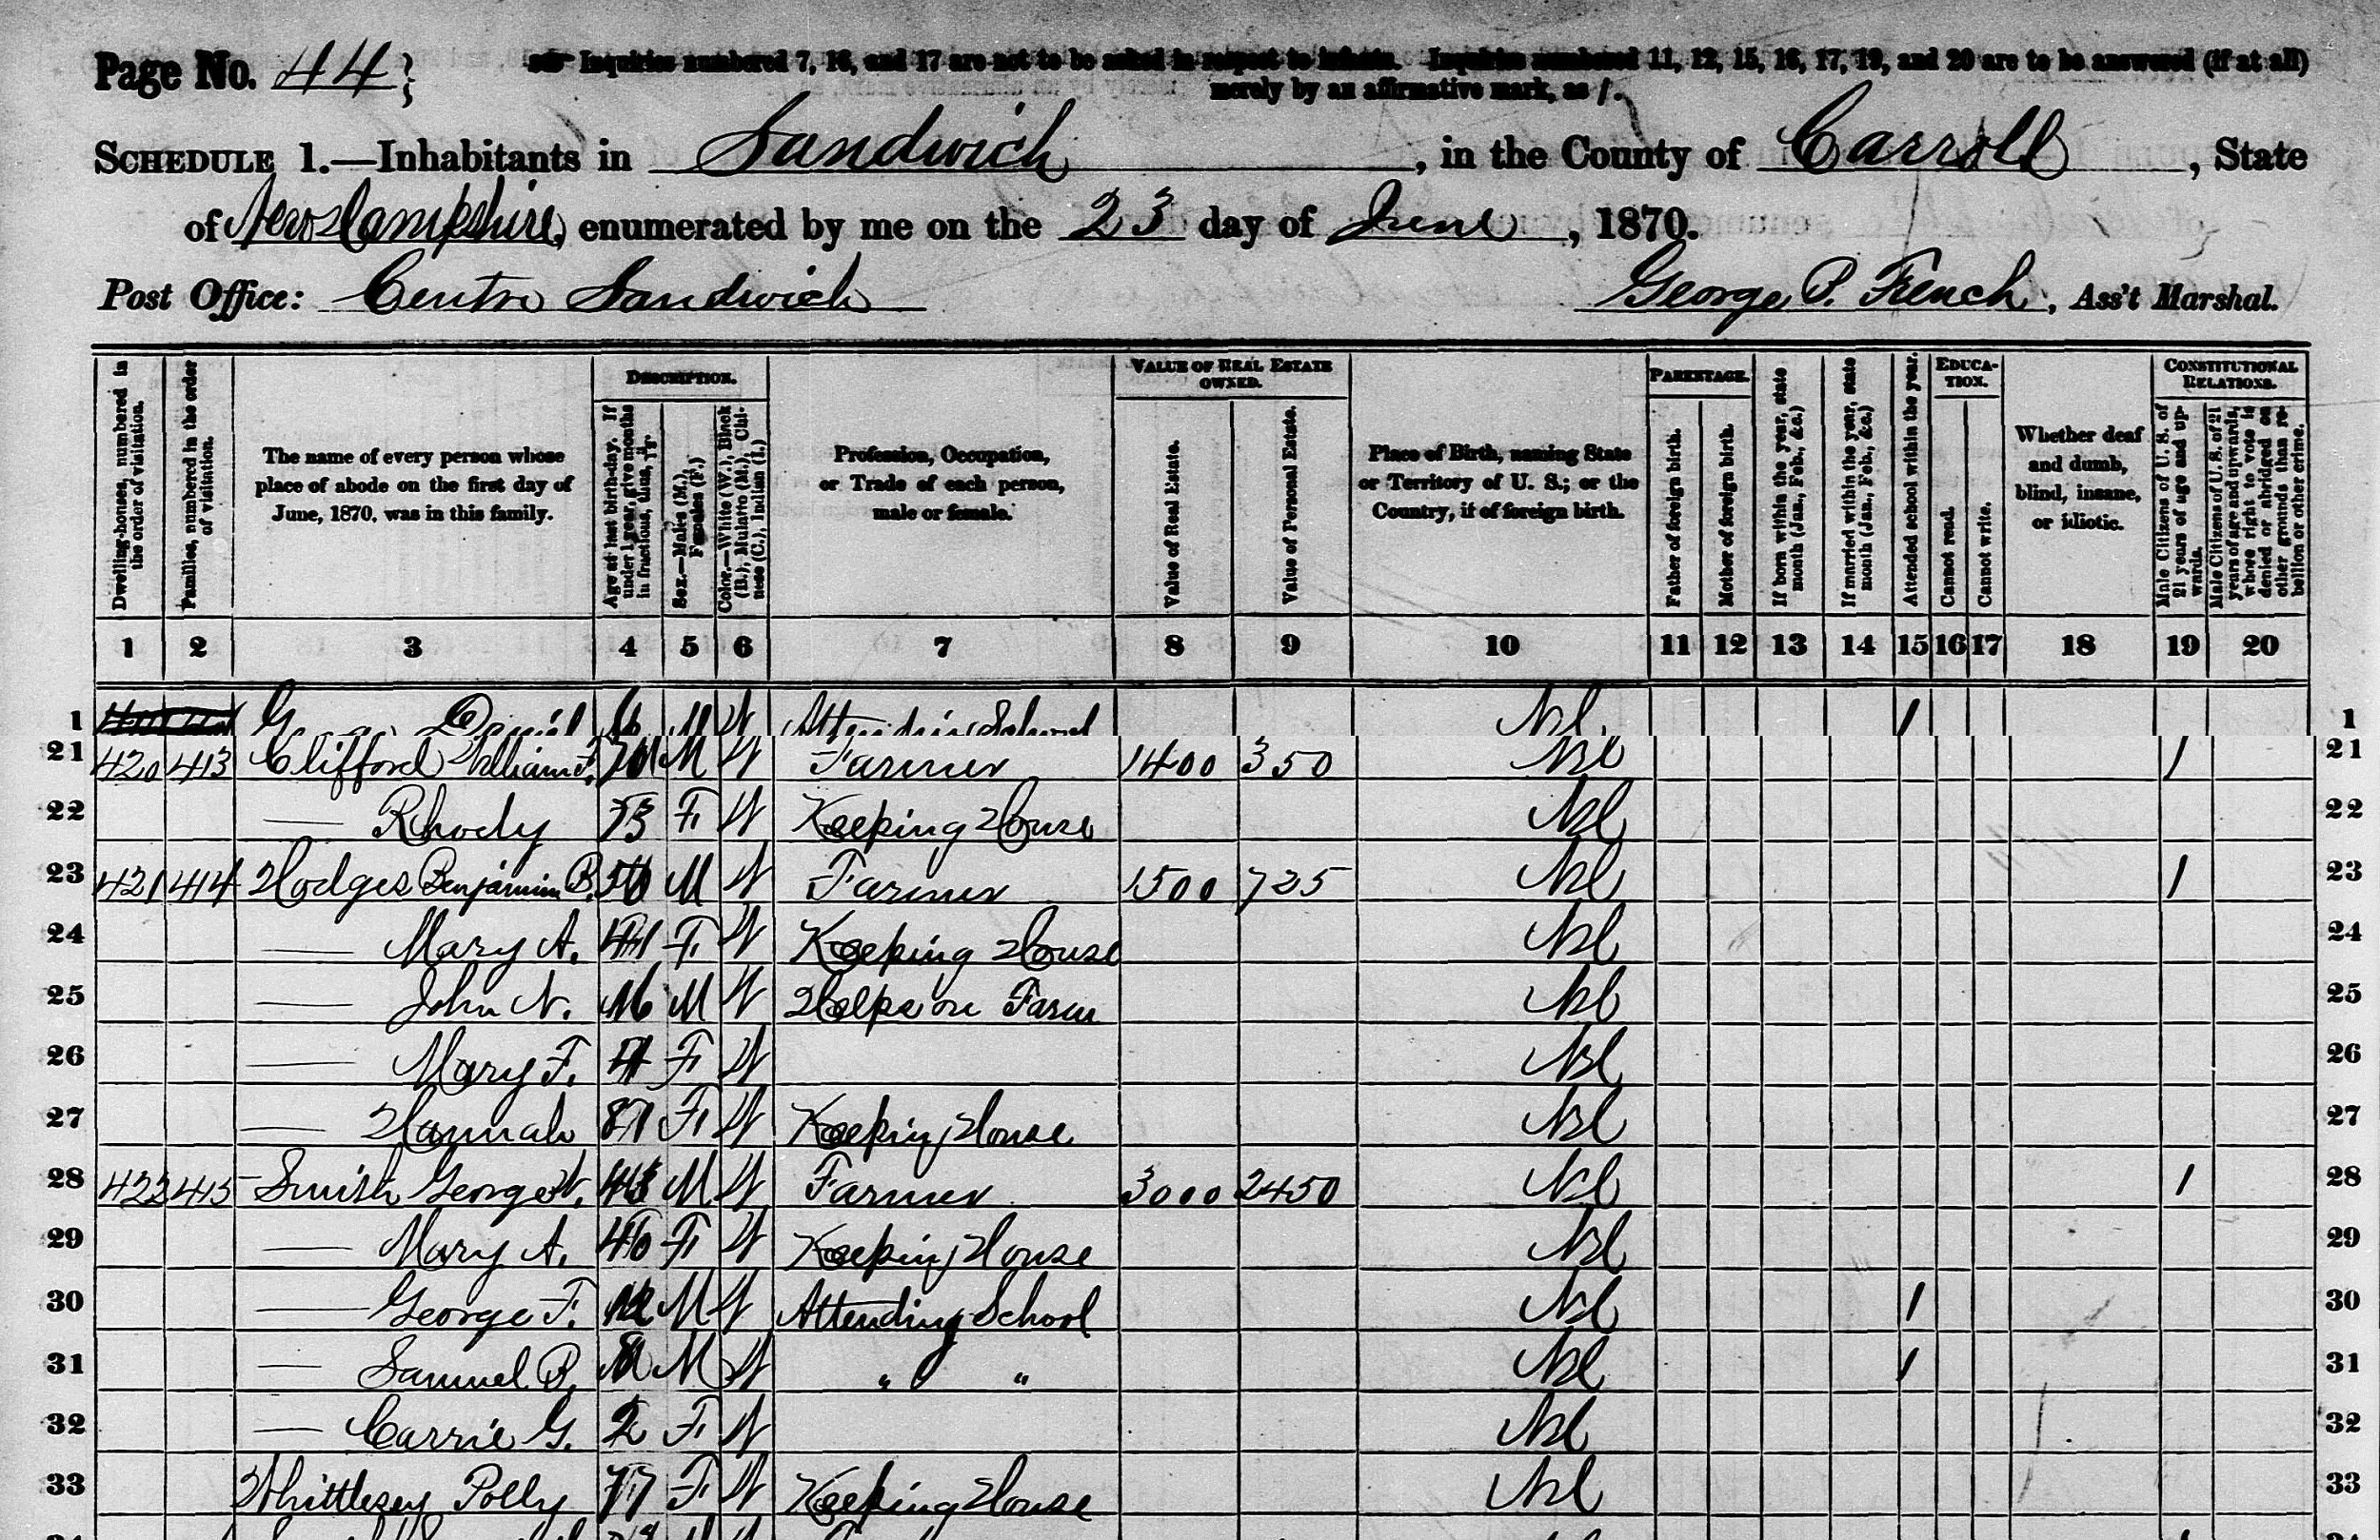 Page No. 44
Inquiries numbered 7, 16, and 17 are not to be asked in respect to infants. Inquiries numbered 11, 12, 15, 16, 17, 19, and 20 are to be answered (if at all)
merely by an affirmative mark, as /.
SCHEDULE 1.—Inhabitants in Sandwich, in the County of Carroll, State
of New Hampshire, enumerated by me on the 23 day of June, 1870.
Post Office: Centre Sandwich George P. French, Ass't Marshal.
DESCRIPTION. VALUE OF REAL ESTATE OWNED. PARENTAGE. EDUCATION. CONSTITUTIONAL RELATIONS.
Dwelling-houses, numbered in the order of visitation.
Families, numbered in the order of visitation.
The name of every person whose place of abode on the first day of June, 1870, was in this family.
Age at last birth-day. If under 1 year, give months in fractions, thus,
Sex.—Males (M.), Females (F.)
Color.—White (W.), Black (B.), Mulatto (M.), Chinese (C.), Indian (I.)
Profession, Occupation, or Trade of each person, male or female.
Value of Real Estate.
Value of Personal Estate.
Place of Birth, naming State or Territory of U. S.; or the Country, if of foreign birth.
Father of foreign birth.
Mother of foreign birth.
If born within the year, state month (Jan., Feb., &c.)
If married within the year, state month (Jan., Feb., &c.)
Attended school within the year.
Cannot read.
Cannot write.
Whether deaf and dumb, blind, insane, or idiotic.
Male Citizens of U. S. of 21 years of age and upwards.
Male Citizens of U. S. of 21 years of age and upwards, whose right to vote is denied or abridged on other grounds than rebellion or other crime.
1 2 3 4 5 6 7 8 9 10 11 12 13 14 15 16 17 18 19 20
1 Daniel M W Attending School NH / 1
21 420 413 Clifford William F. M W Farmer 1400 350 NH / 21
22 — Rhody 73 F W Keeping House NH 22
23 421 414 Hodges Benjamin B. 50 M W Farmer 1500 725 NH / 23
24 — Mary A. F W Keeping House NH 24
25 — John N. 16 M W Helps on Farm NH 25
26 — Mary F. 4 F W NH 26
27 — Hannah 81 F W Keeping House NH 27
28 422 415 Smith George W. 43 M W Farmer 3000 2450 NH / 28
29 — Mary A. 40 F W Keeping House NH 29
30 — George F. 12 M W Attending School NH / 30
31 — Samuel B. M W " " NH / 31
32 — Carrie G. 2 F W NH 32
33 Whittlesey Polly 77 F W Keeping House NH 33